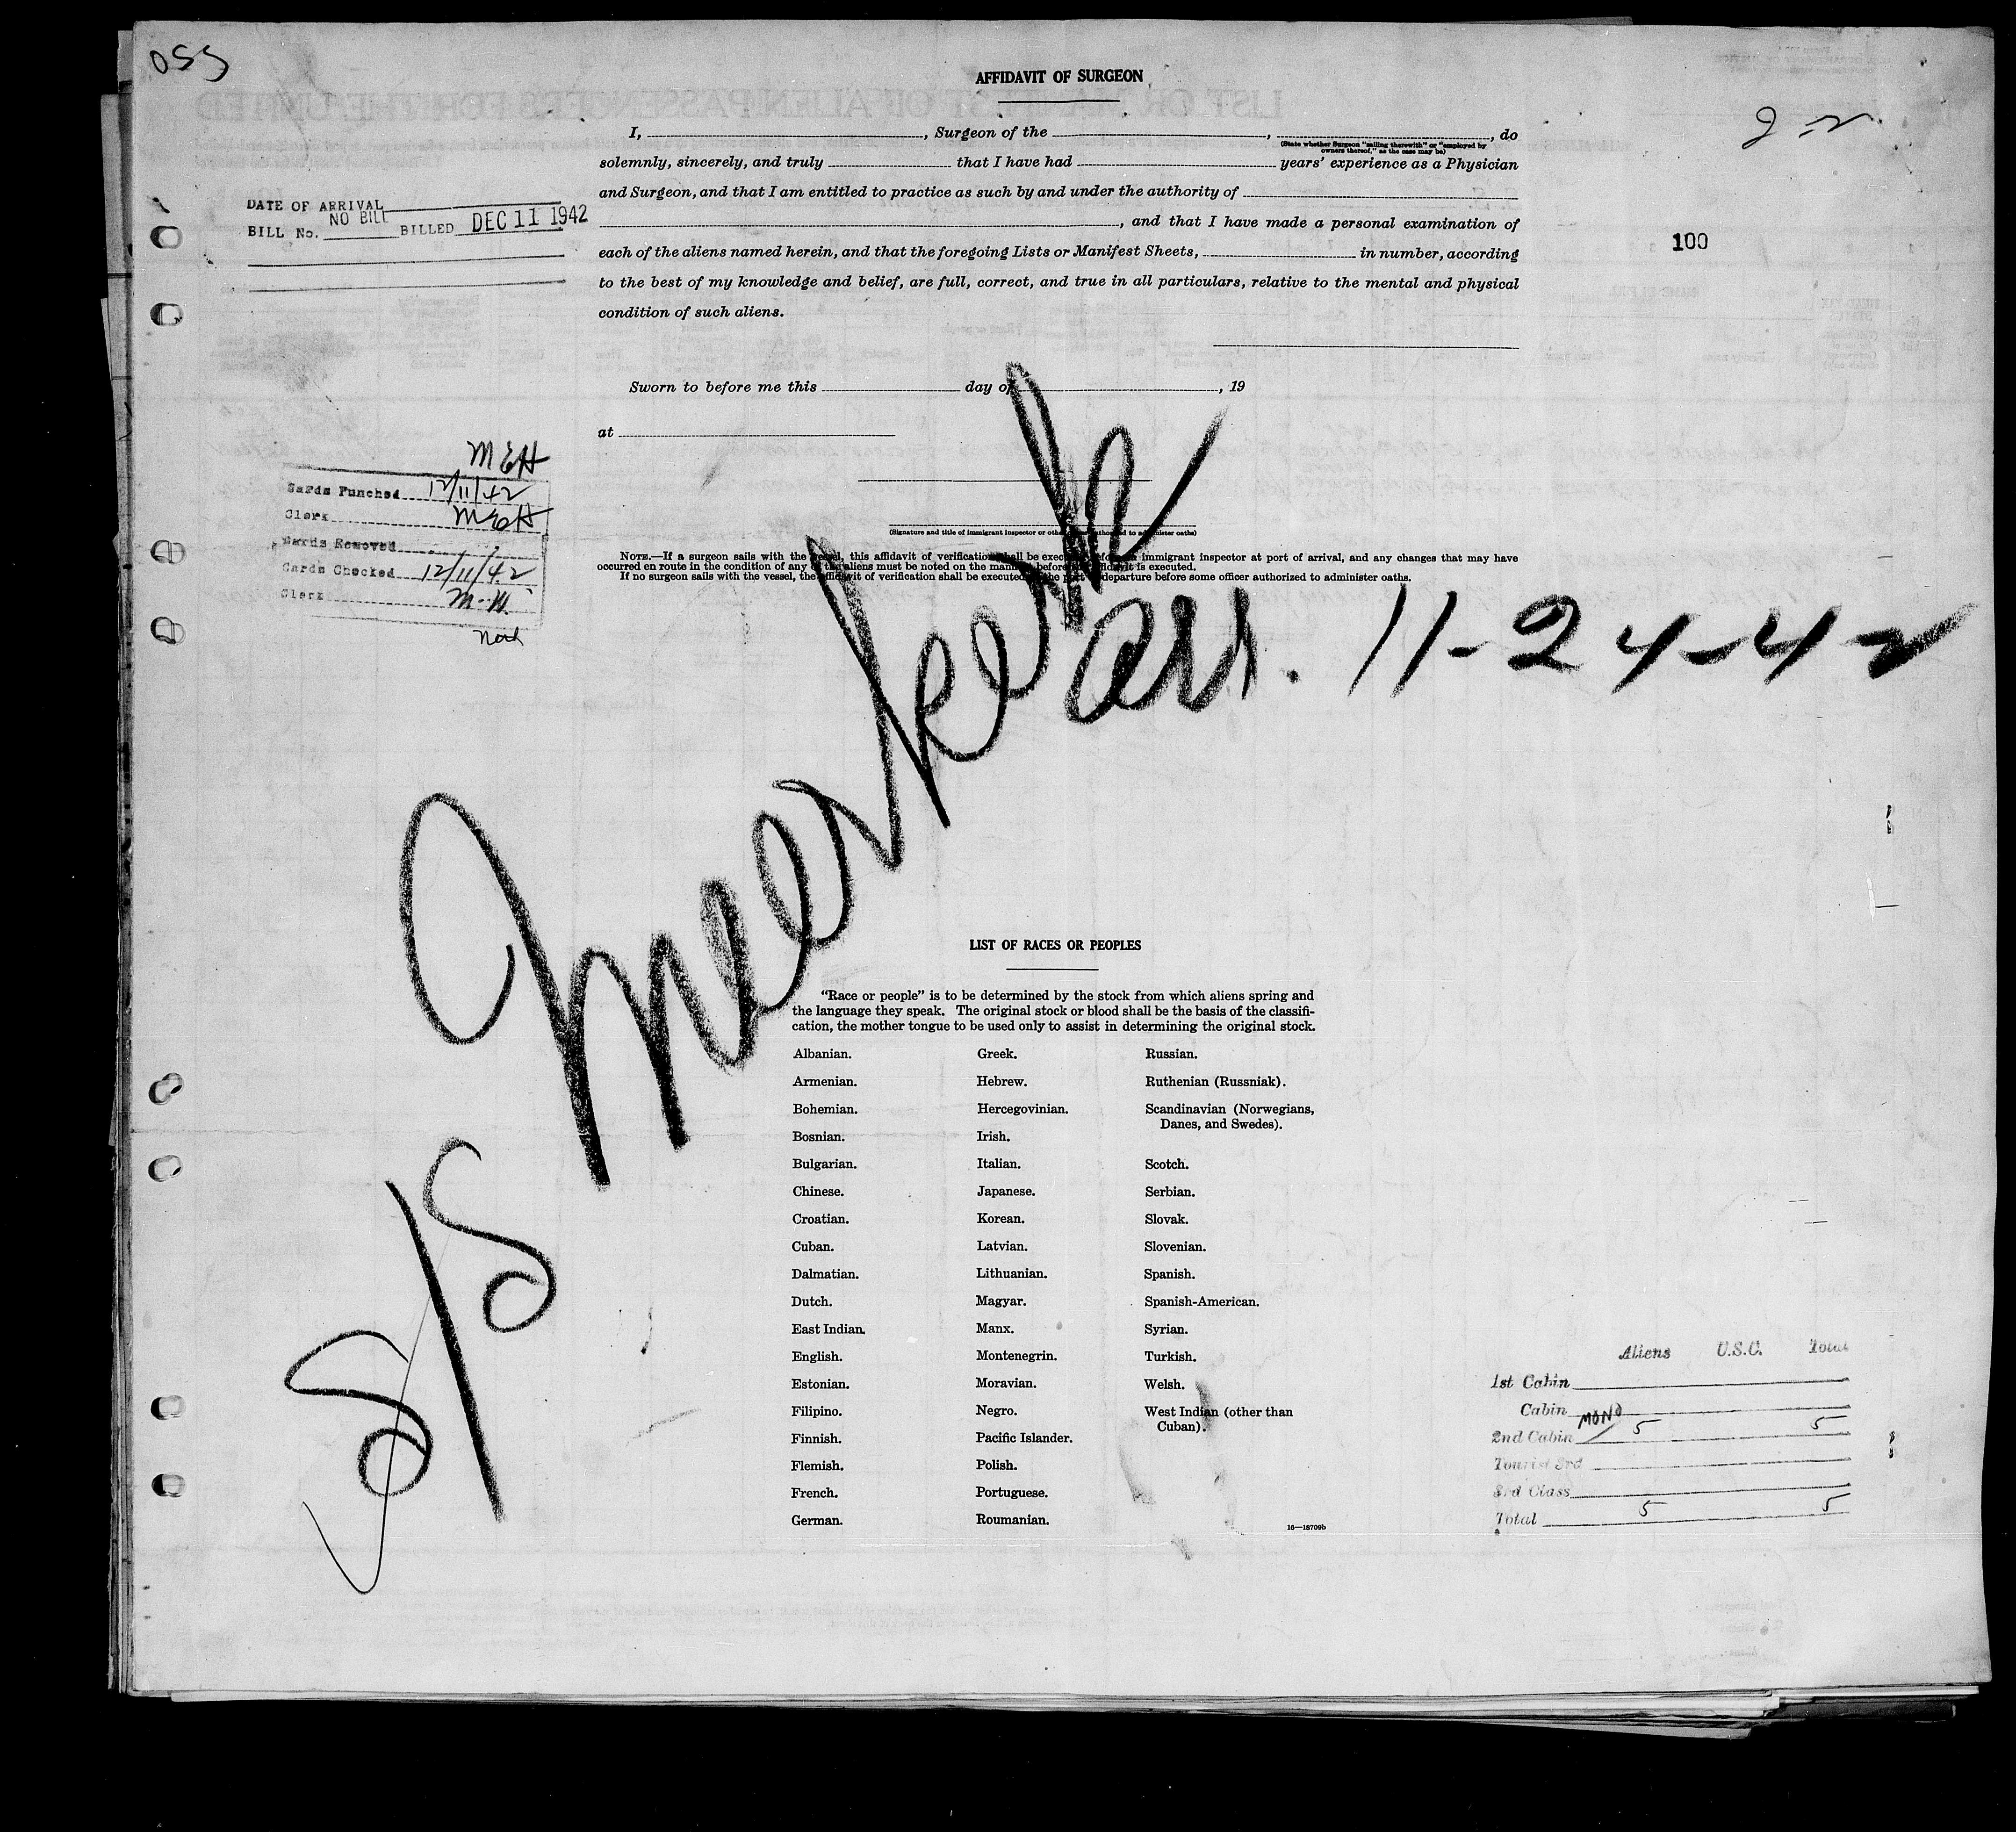 055
AFFIDAVIT OF SURGEON
I, , Surgeon of the , , do
(State whether Surgeon "sailing therewith" or "employed by
owners thereof," as the case may be)
solemnly, sincerely, and truly that I have had years' experience as a Physician
and Surgeon, and that I am entitled to practice as such by and under the authority of
, and that I have made a personal examination of
each of the aliens named herein, and that the foregoing Lists or Manifest Sheets, in number, according
to the best of my knowledge and belief, are full, correct, and true in all particulars, relative to the mental and physical
condition of such aliens.
Sworn to before me this day of , 19
at
DATE OF ARRIVAL
BILL No. NO BILL BILLED DEC 11 1942
100
MEH
Cards Punched 12/11/42
Clerk MEH
Cards Removed
Cards Checked 12/11/42
Clerk M.W.
(Signature and title of immigrant inspector or other officer authorized to administer oaths)
NOTE.—If a surgeon sails with the vessel, this affidavit of verification shall be executed before an immigrant inspector at port of arrival, and any changes that may have
occurred en route in the condition of any of the aliens must be noted on the manifest before the affidavit is executed.
If no surgeon sails with the vessel, the affidavit of verification shall be executed at the port of departure before some officer authorized to administer oaths.
S/S Meerkerk
arr. 11-24-42
LIST OF RACES OR PEOPLES
"Race or people" is to be determined by the stock from which aliens spring and
the language they speak. The original stock or blood shall be the basis of the classifi-
cation, the mother tongue to be used only to assist in determining the original stock.
Albanian.
Armenian.
Bohemian.
Bosnian.
Bulgarian.
Chinese.
Croatian.
Cuban.
Dalmatian.
Dutch.
East Indian.
English.
Estonian.
Filipino.
Finnish.
Flemish.
French.
German.
Greek.
Hebrew.
Hercegovinian.
Irish.
Italian.
Japanese.
Korean.
Latvian.
Lithuanian.
Magyar.
Manx.
Montenegrin.
Moravian.
Negro.
Pacific Islander.
Polish.
Portuguese.
Roumanian.
Russian.
Ruthenian (Russniak).
Scandinavian (Norwegians,
Danes, and Swedes).
Scotch.
Serbian.
Slovak.
Slovenian.
Spanish.
Spanish-American.
Syrian.
Turkish.
Welsh.
West Indian (other than
Cuban).
16—18709b
Aliens U.S.C. Total
1st Cabin
Cabin MONO
2nd Cabin 5 5
Tourist 3rd
3rd Class
Total 5 5